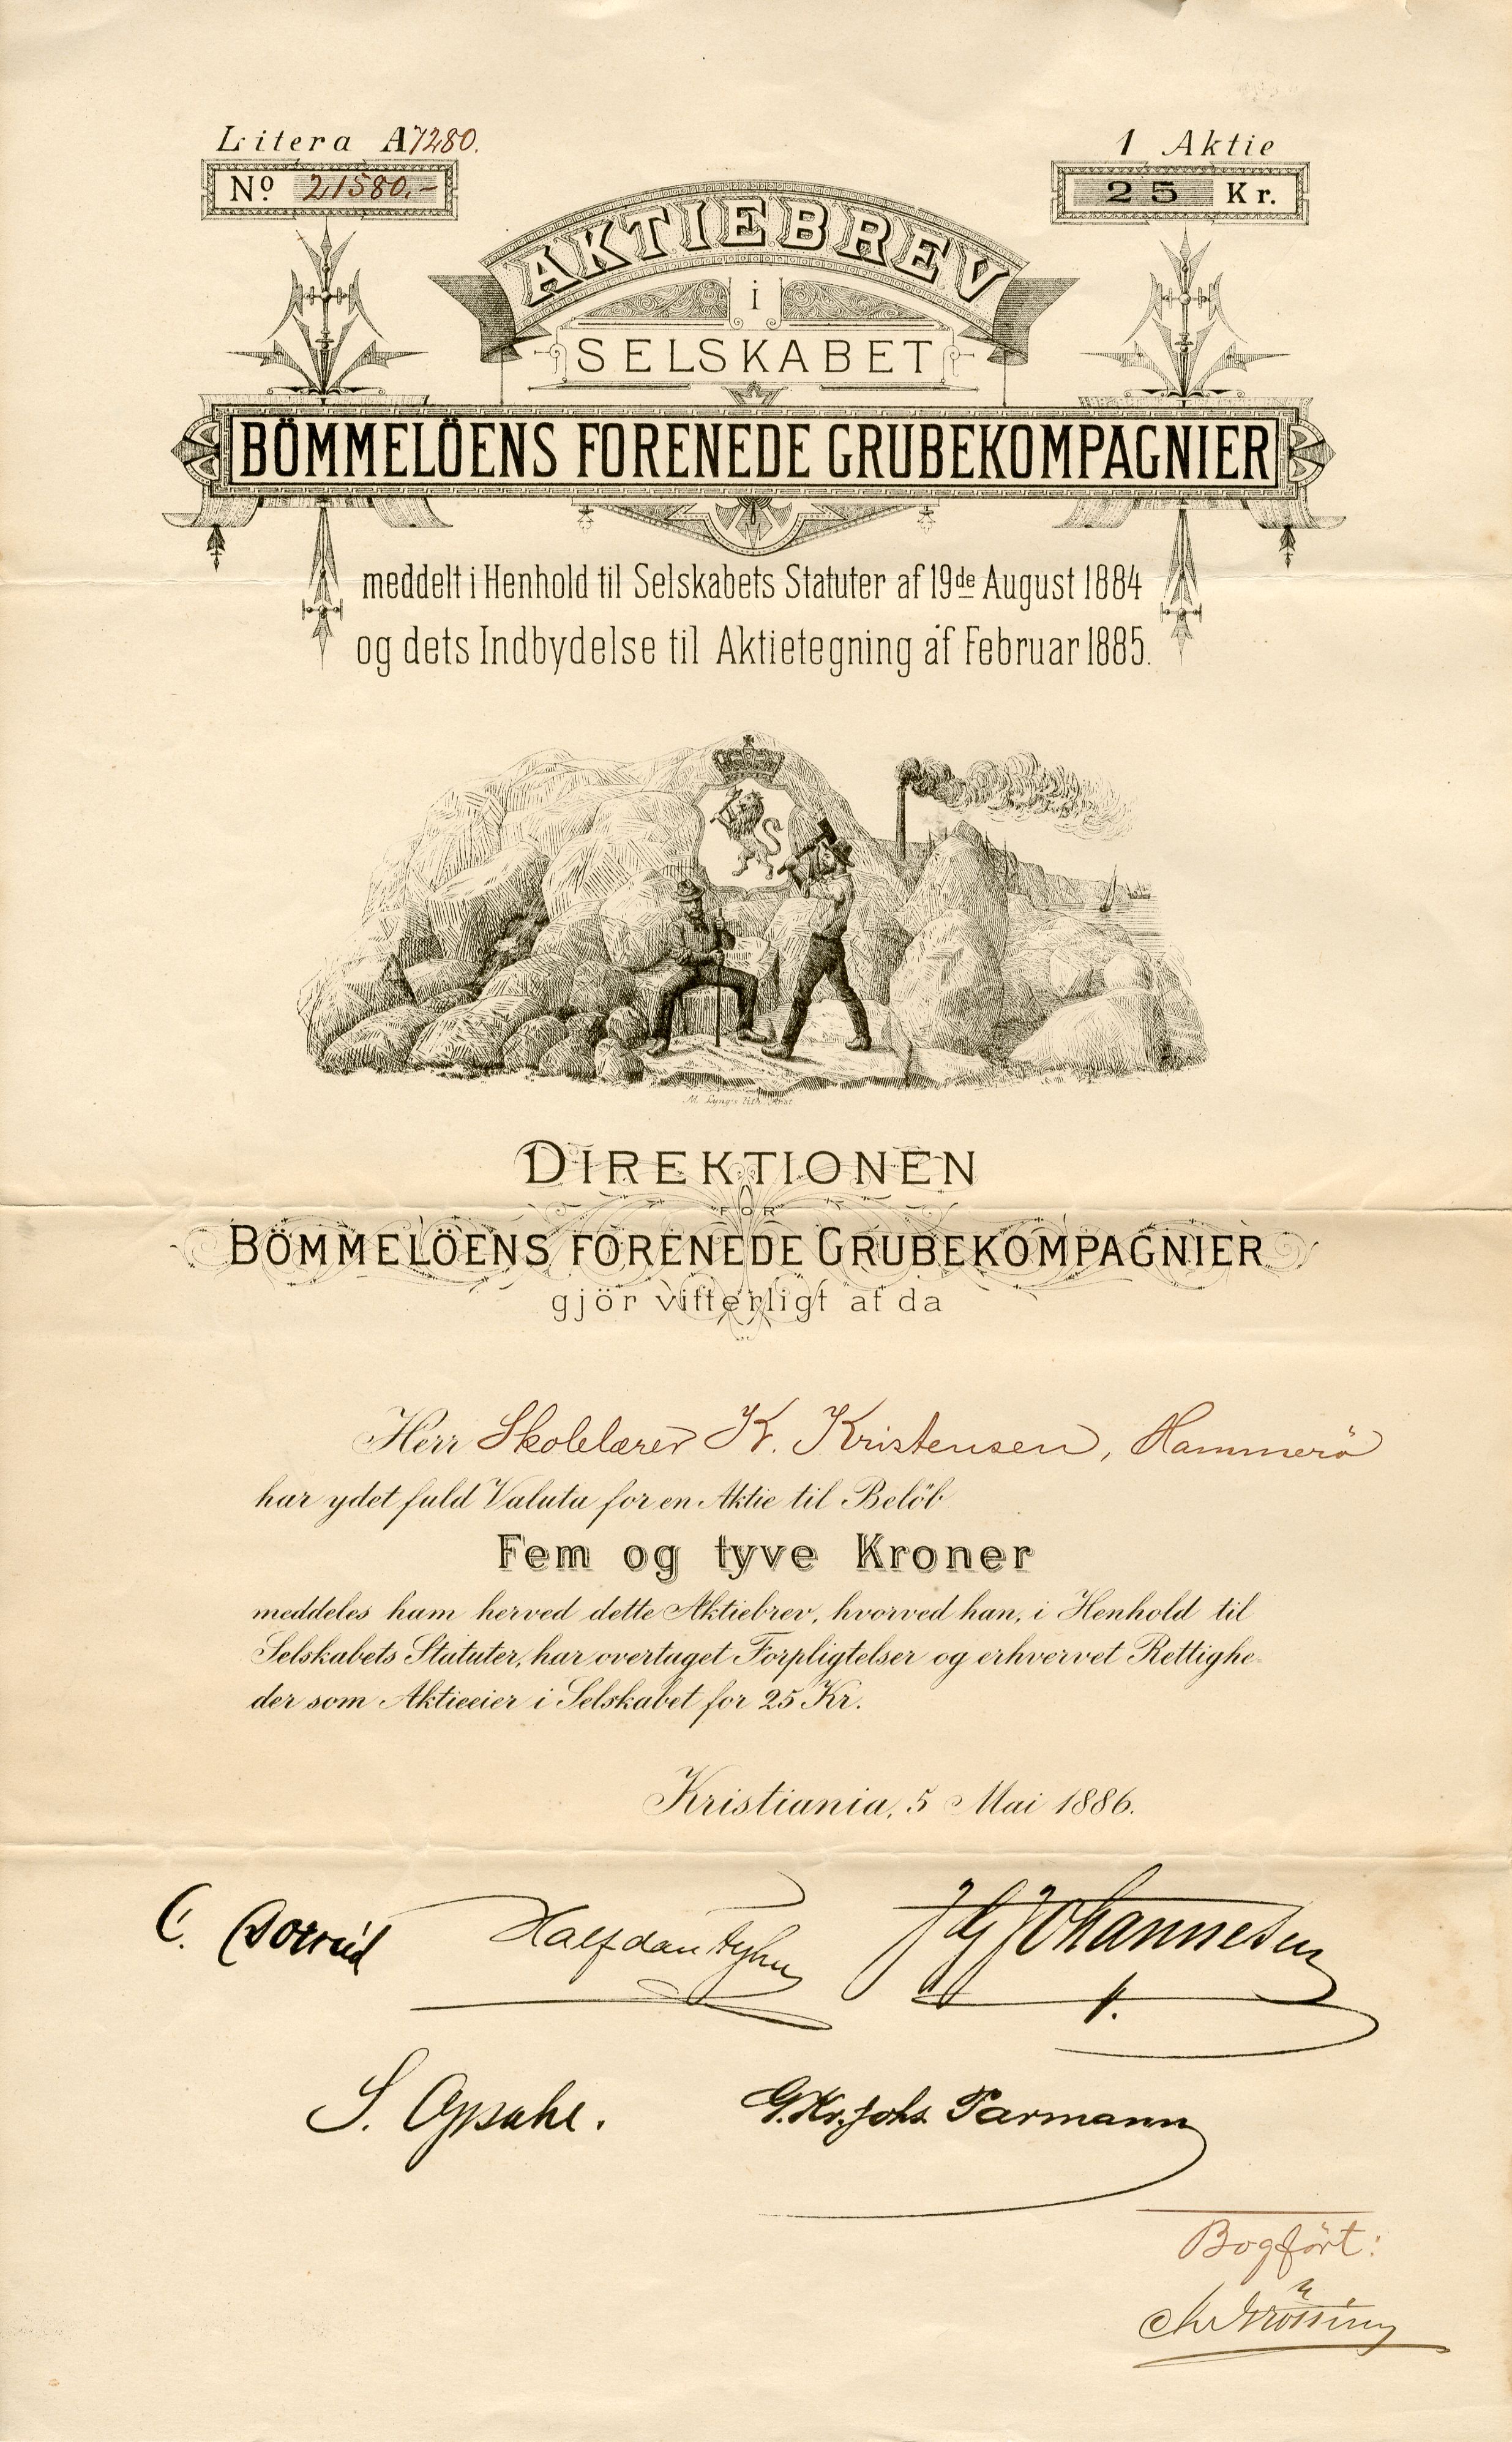 Litera A 7280.
No. 21580.-
1 Aktie
25 Kr.
AKTIEBREV
i
SELSKABET
BÖMMELÖENS FORENEDE GRUBEKOMPAGNIER
meddelt i Henhold til Selskabets Statuter af 19de August 1884
og dets Indbydelse til Aktietegning af Februar 1885.
DIREKTIONEN
FOR
BÖMMELÖENS FORENEDE GRUBEKOMPAGNIER
gjör vitterligt at da
Herr Skolelærer K. Kristensen, Hammerö
har ydet fuld Valuta for en Aktie til Belöb
Fem og tyve Kroner
meddeles ham herved dette Aktiebrev, hvorved han, i Henhold til
Selskabets Statuter, har overtaget Forpligtelser og erhvervet Rettighe-
der som Aktieeier i Selskabet for 25 Kr.
Kristiania, 5 Mai 1886.
C.
Halfdan
Johannesen
S. Opsahl.
G. Kr. Johs. Parmann
Bogfört: